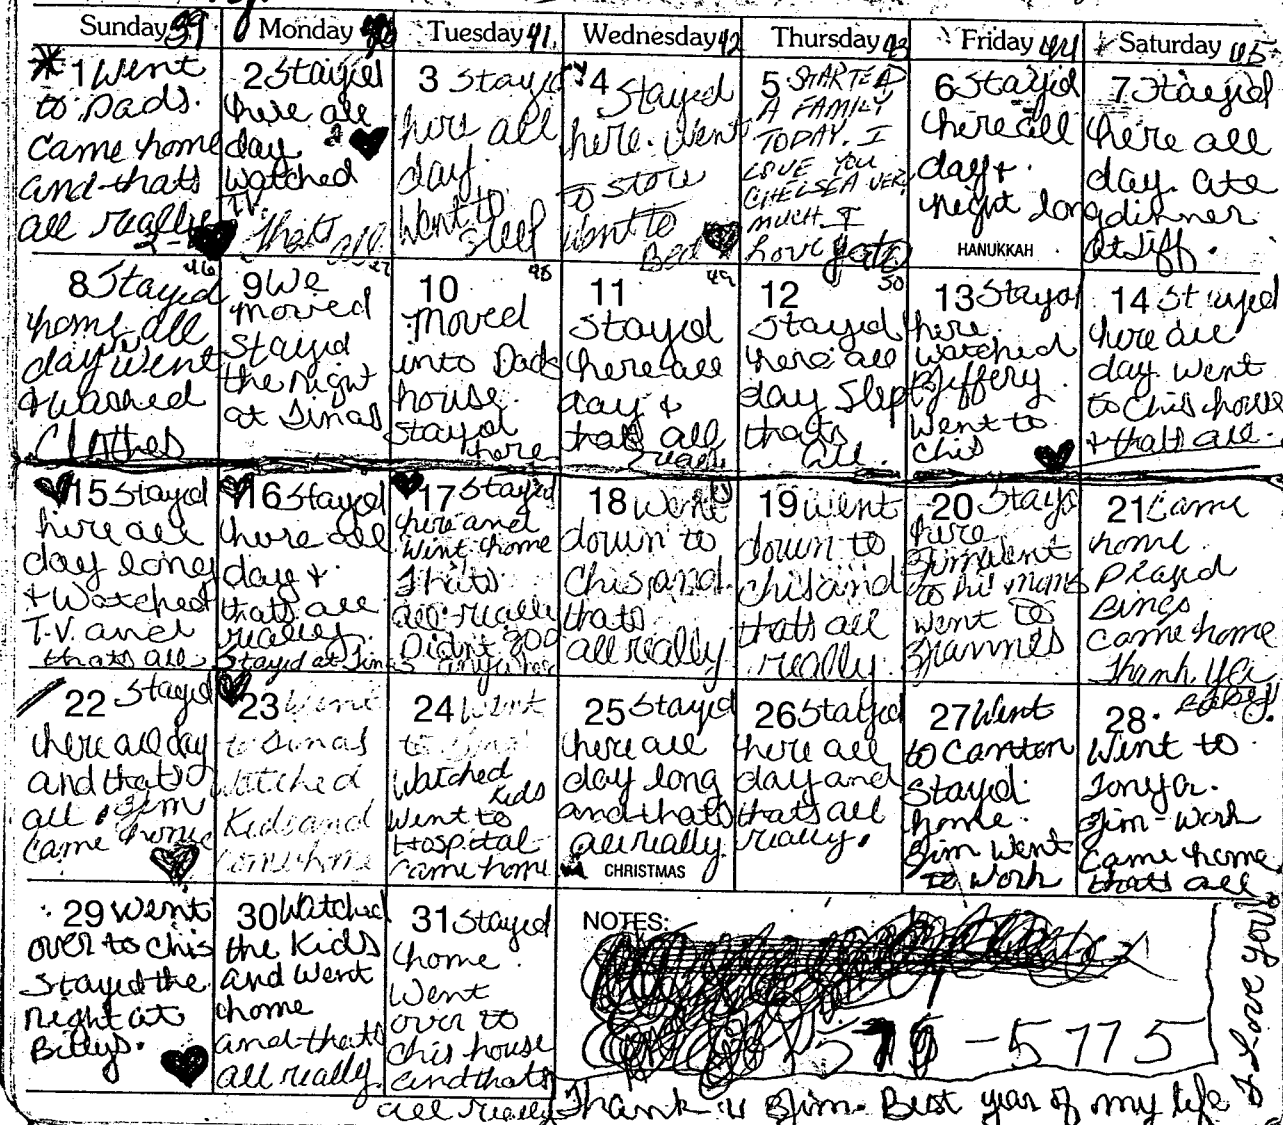 Sunday 39 Monday 40 Tuesday 41 Wednesday 42 Thursday 43 Friday 44 Saturday 45
1 Went
to Dads.
Came home
and thats
all really
2 Stayed
here all
day
Watched
T.V.
thats all
3 Stayed
here all
day.
Went to
sleep
4 Stayed
here. Went
to store
Went to
Bed
5 STARTED
A FAMILY
TODAY. I
LOVE YOU
CHELSEA VERY
MUCH I
Love
6 Stayed
here all
day +
night long
HANUKKAH
7 Stayed
here all
day. ate
dinner
at Jiff.
46
8 Stayed
home all
day went
+ Washed
Clothes
47
9 We
moved
Stayed
the night
at Dinas
48
10
Moved
into Dads
house.
Stayed
here
49
11
Stayed
here all
day +
thats all
really
50
12
Stayed
here all
day Slep
thats
all.
13 Stayed
here.
Watched
Jiffery.
Went to
Chis
14 Stayed
here all
day went
to Chis house
+ thats all.
15 Stayed
here all
day long
+ Watched
T.V. and
thats all
16 Stayed
here all
day +
thats all
really.
Stayed at
17 Stayed
here and
Went home
Thats
all really
Didnt goo
anywhere
18 Went
down to
Chis and
thats
all really
19 Went
down to
Chis and
thats all
really.
20 Stayd
here
Jim Went
to his moms
Went to
Grammes
21 Came
home.
Played
Bingo
Came home
Thank Ya
Baby!
22 Stayed
here all day
and thats
all. Jim
Came home
23 Went
to Dinas
Watched
Kids and
Come home
24 Went
to
Watched
Kids
Went to
Hospital
Came home
25 Stayed
here all
day long
and thats
all really
CHRISTMAS
26 Stayed
here all
day and
thats all
really.
27 Went
to Canton
Stayed
home.
Jim Went
to Work
28. Went to
Tonya.
Jim - Work
Came home
thats all
29 Went
over to Chis
Stayed the
night at
Billys.
30 Watched
the Kids
and Went
home
and thats
all really.
31 Stayed
home.
Went
over to
Chis house
and thats
all really
NOTES:
-5775
I Love you
Thank u Jim. Best year of my life